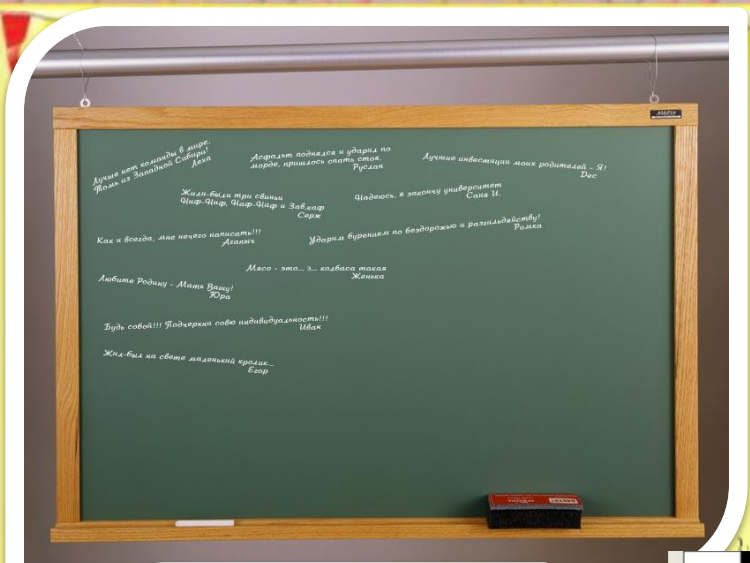 Лучше нет команды в мире,
Томь из Западной Сибири!
Леха
Асфальт поднялся и ударил по
морде, пришлось спать стоя.
Руслан
Лучшие инвестиции моих родителей - Я!
Dec
Жили-были три свиньи
Ниф-Ниф, Наф-Наф и Завкаф
Серж
Надеюсь, я закончу университет
Саня И.
Как и всегда, мне нечего написать!!!
Агапыч
Ударим бурением по бездорожью и разгильдяйству!
Ромка
Мясо - это... э... колбаса такая
Женька
Любите Родину - Мать Вашу!
Юра
Будь собой!!! Подчеркни совю индивидуальность!!!
Иван
Жил-был на свете маленький кролик...
Егор